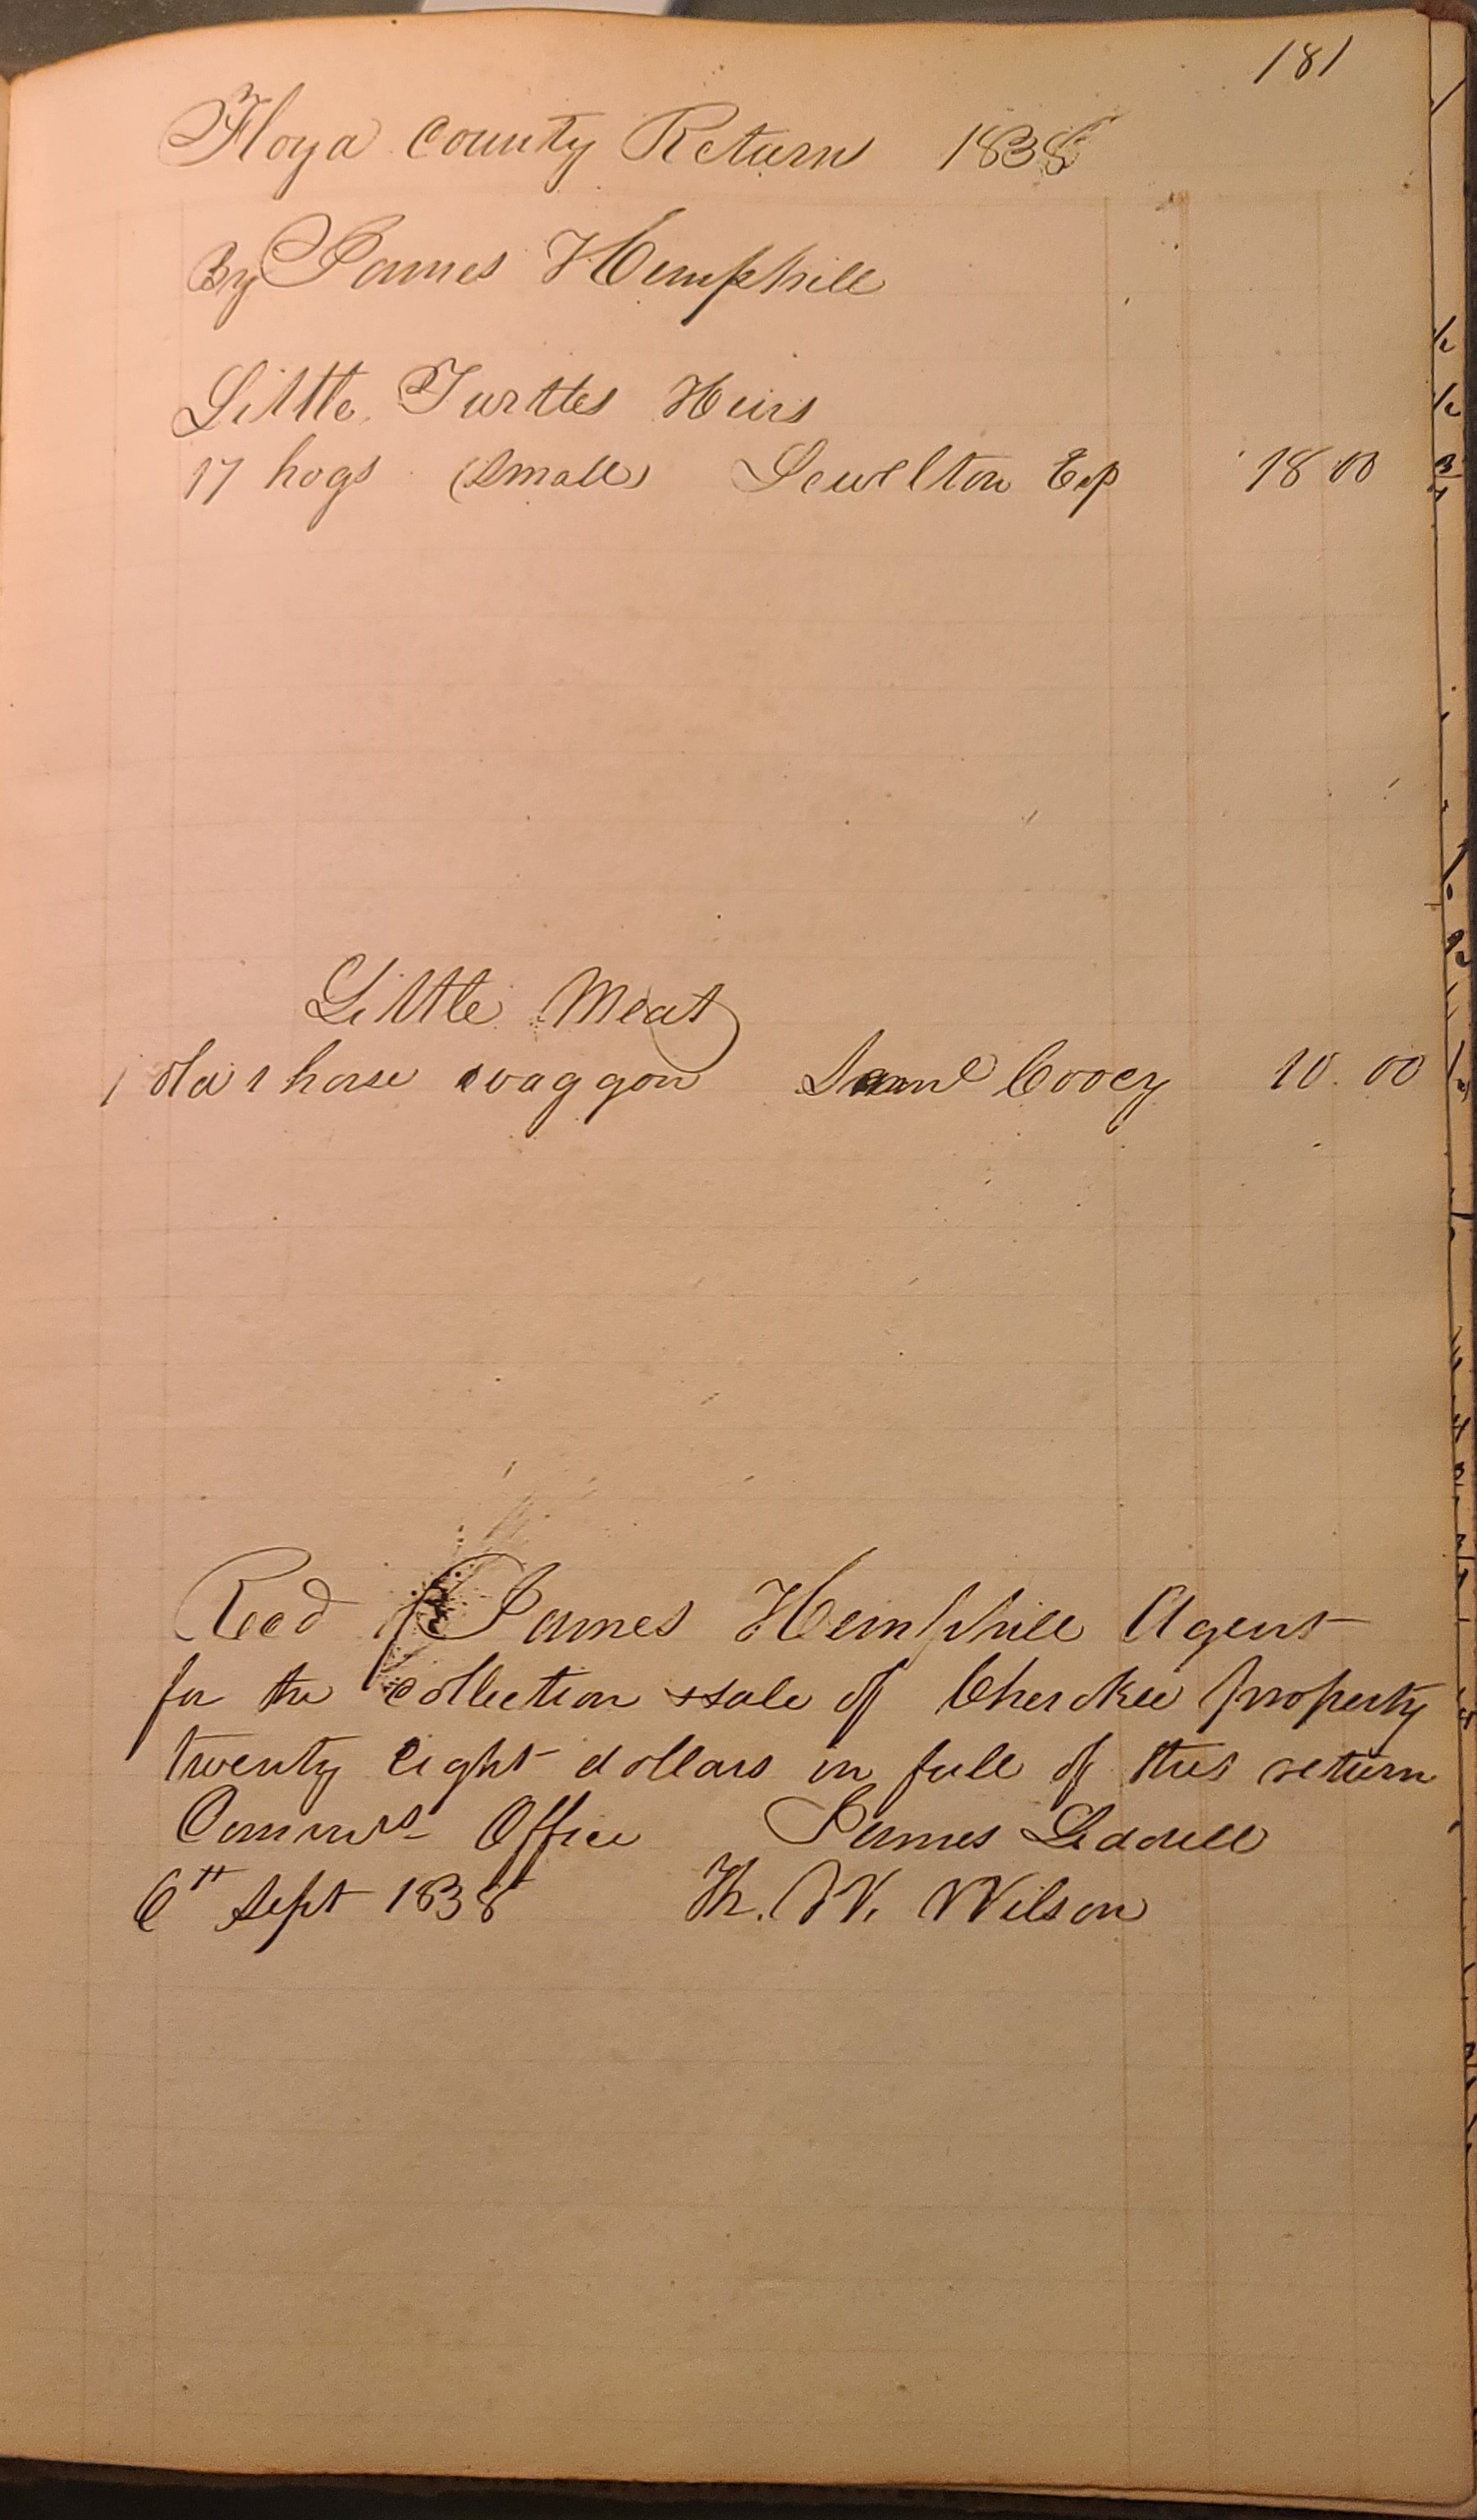 181
Floyd County Return 1838
By James Hemphill
Little Turtles Heirs
17 hogs (Small) Esp 18 00
Little Meat
1 old 1 horse waggon Saml Cooey 10.00
Recd James Hemphill Agent
for the collection & sale of Cherokee property
twenty eight dollars in full of this return
Commrs Office James Liddell
6th Sept 1838 Th. W. Wilson